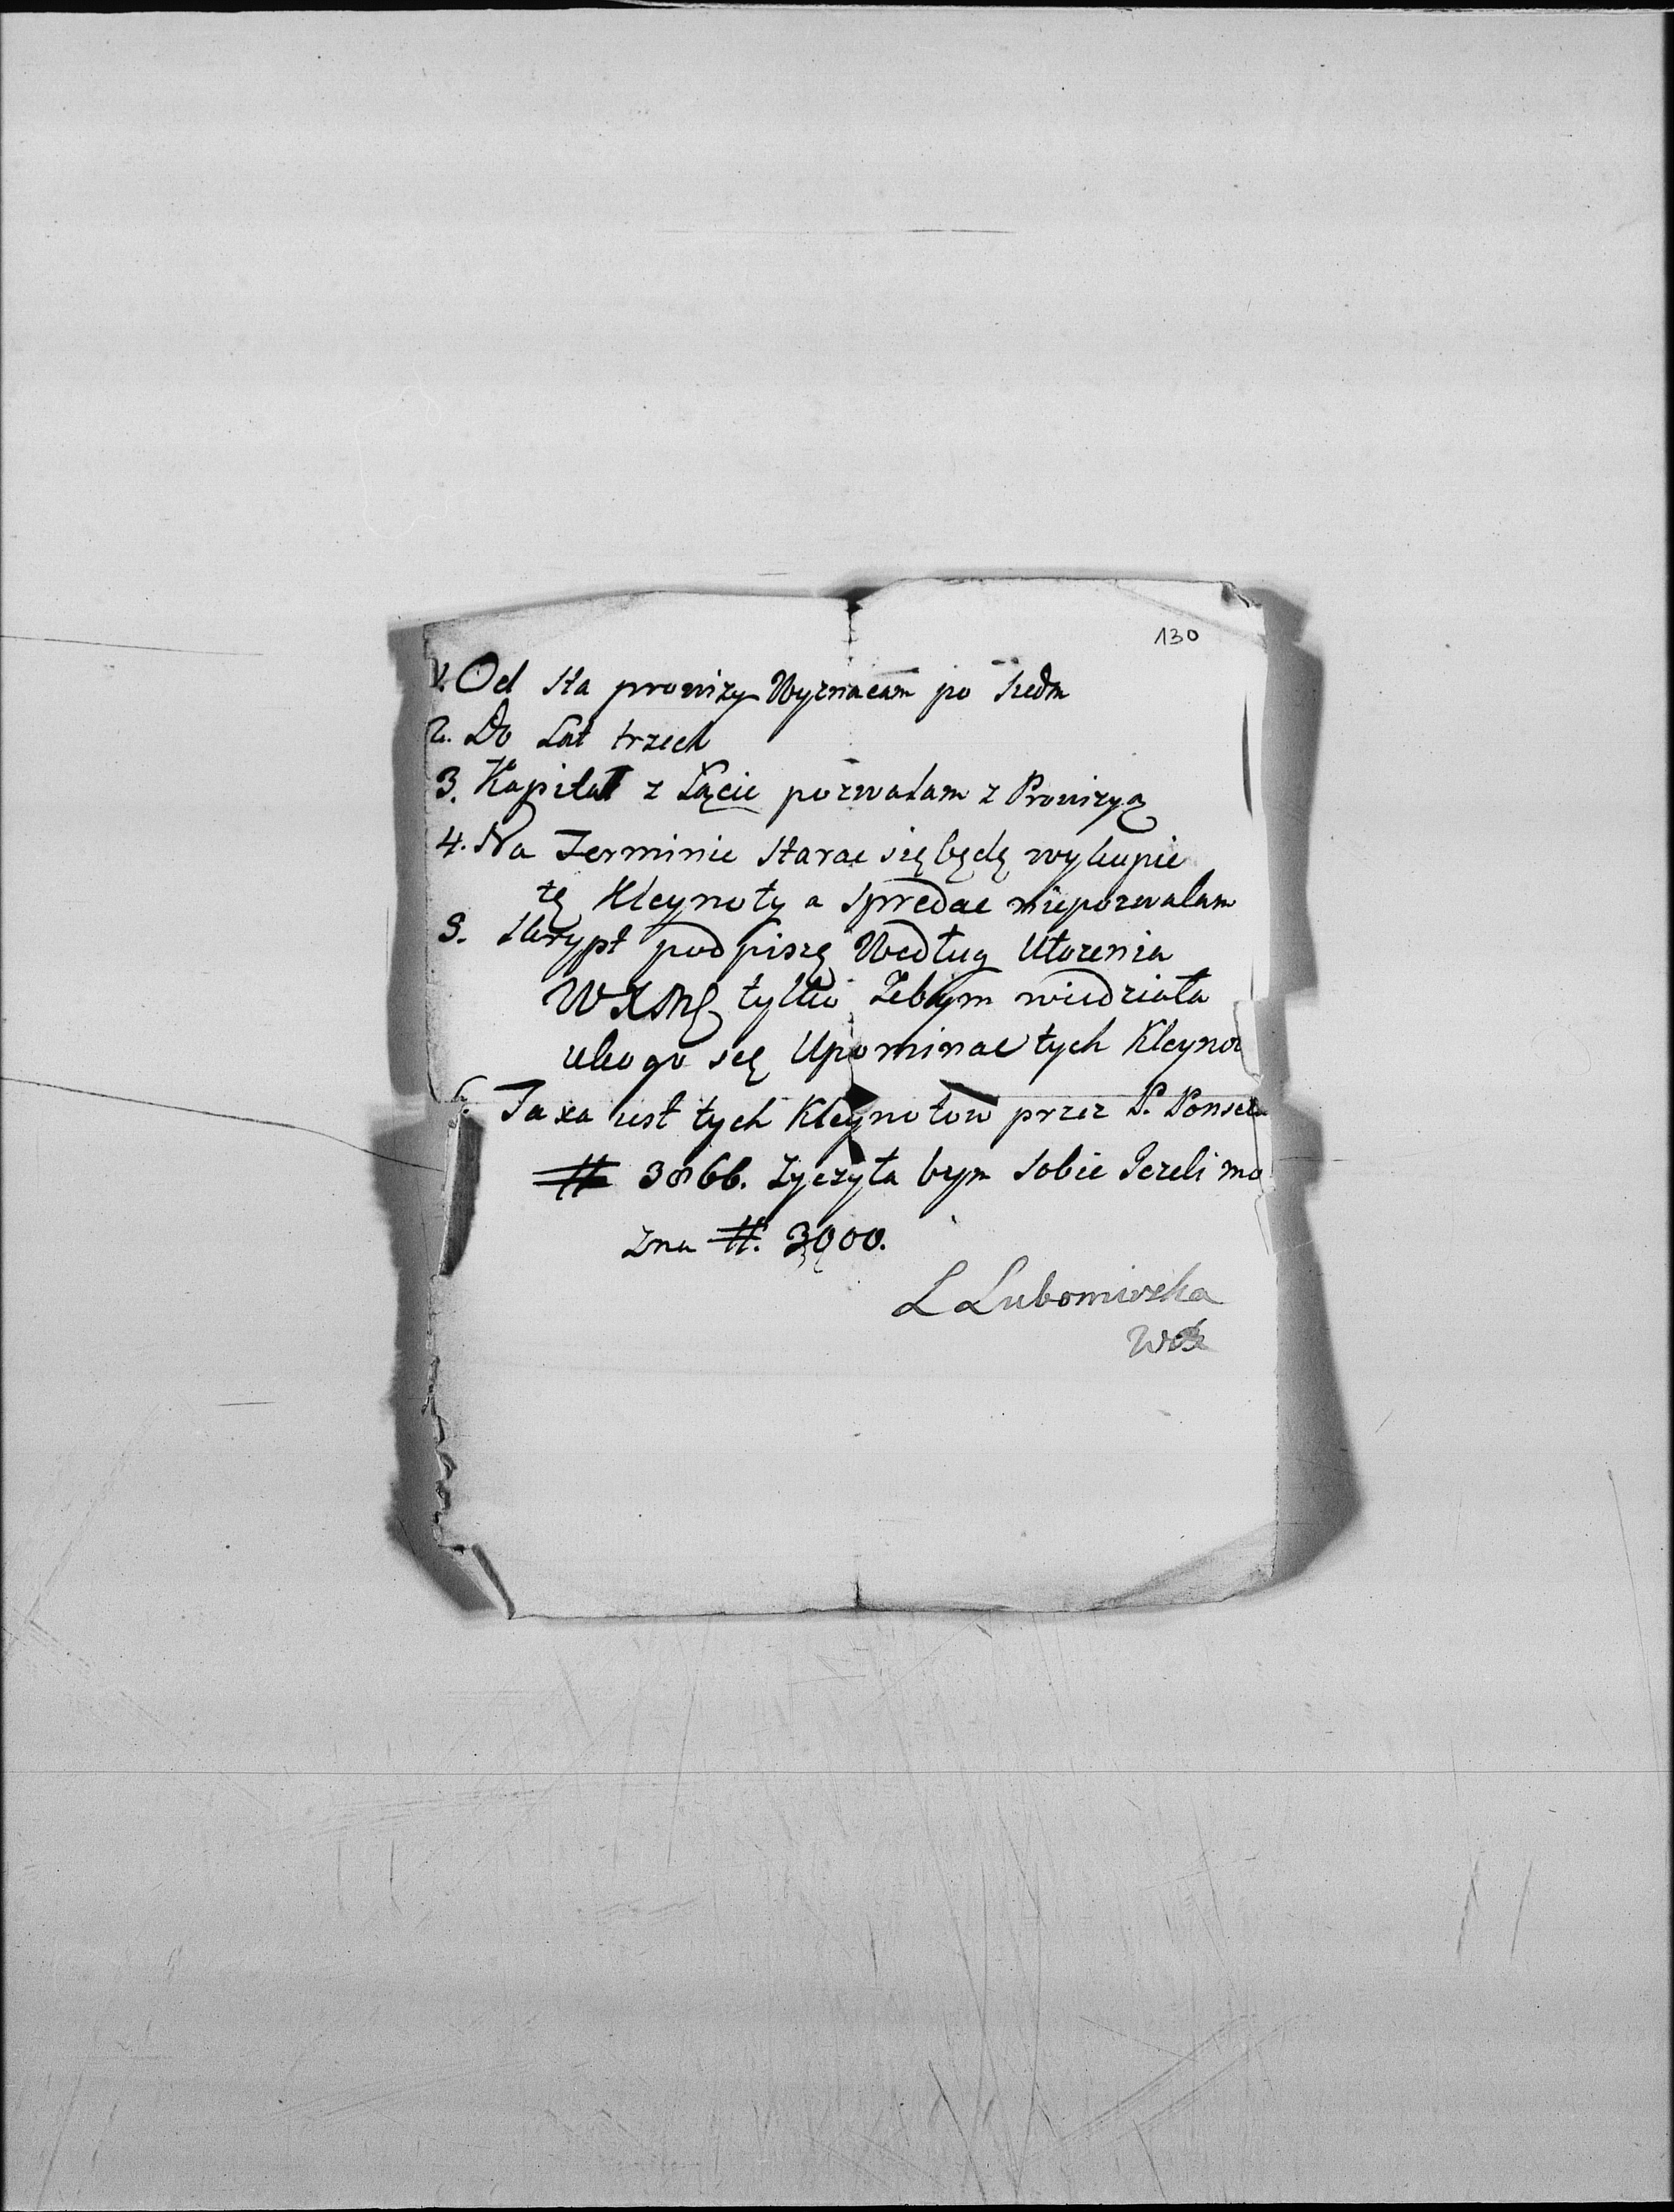 130
1. Od sta prowizy Wyznaeam po siedm
2. Do Lat trzech
3. Kapitał z Łącie pozwalam z Prowizyą
4. Na Terminie starae się będę wykupie
tę Kleynoty a spredae niepozwalam
5. Skrypt podpiszę Według Ułozenia
tylko Zebym wiedziała
ukogo się Upominae tych Kleyno
6. Taxa iest tych Kleynotow przez P.
# 3866. Zyczyła bym sobie Iezeli mo
zna #. 3000.
L Lubomirska